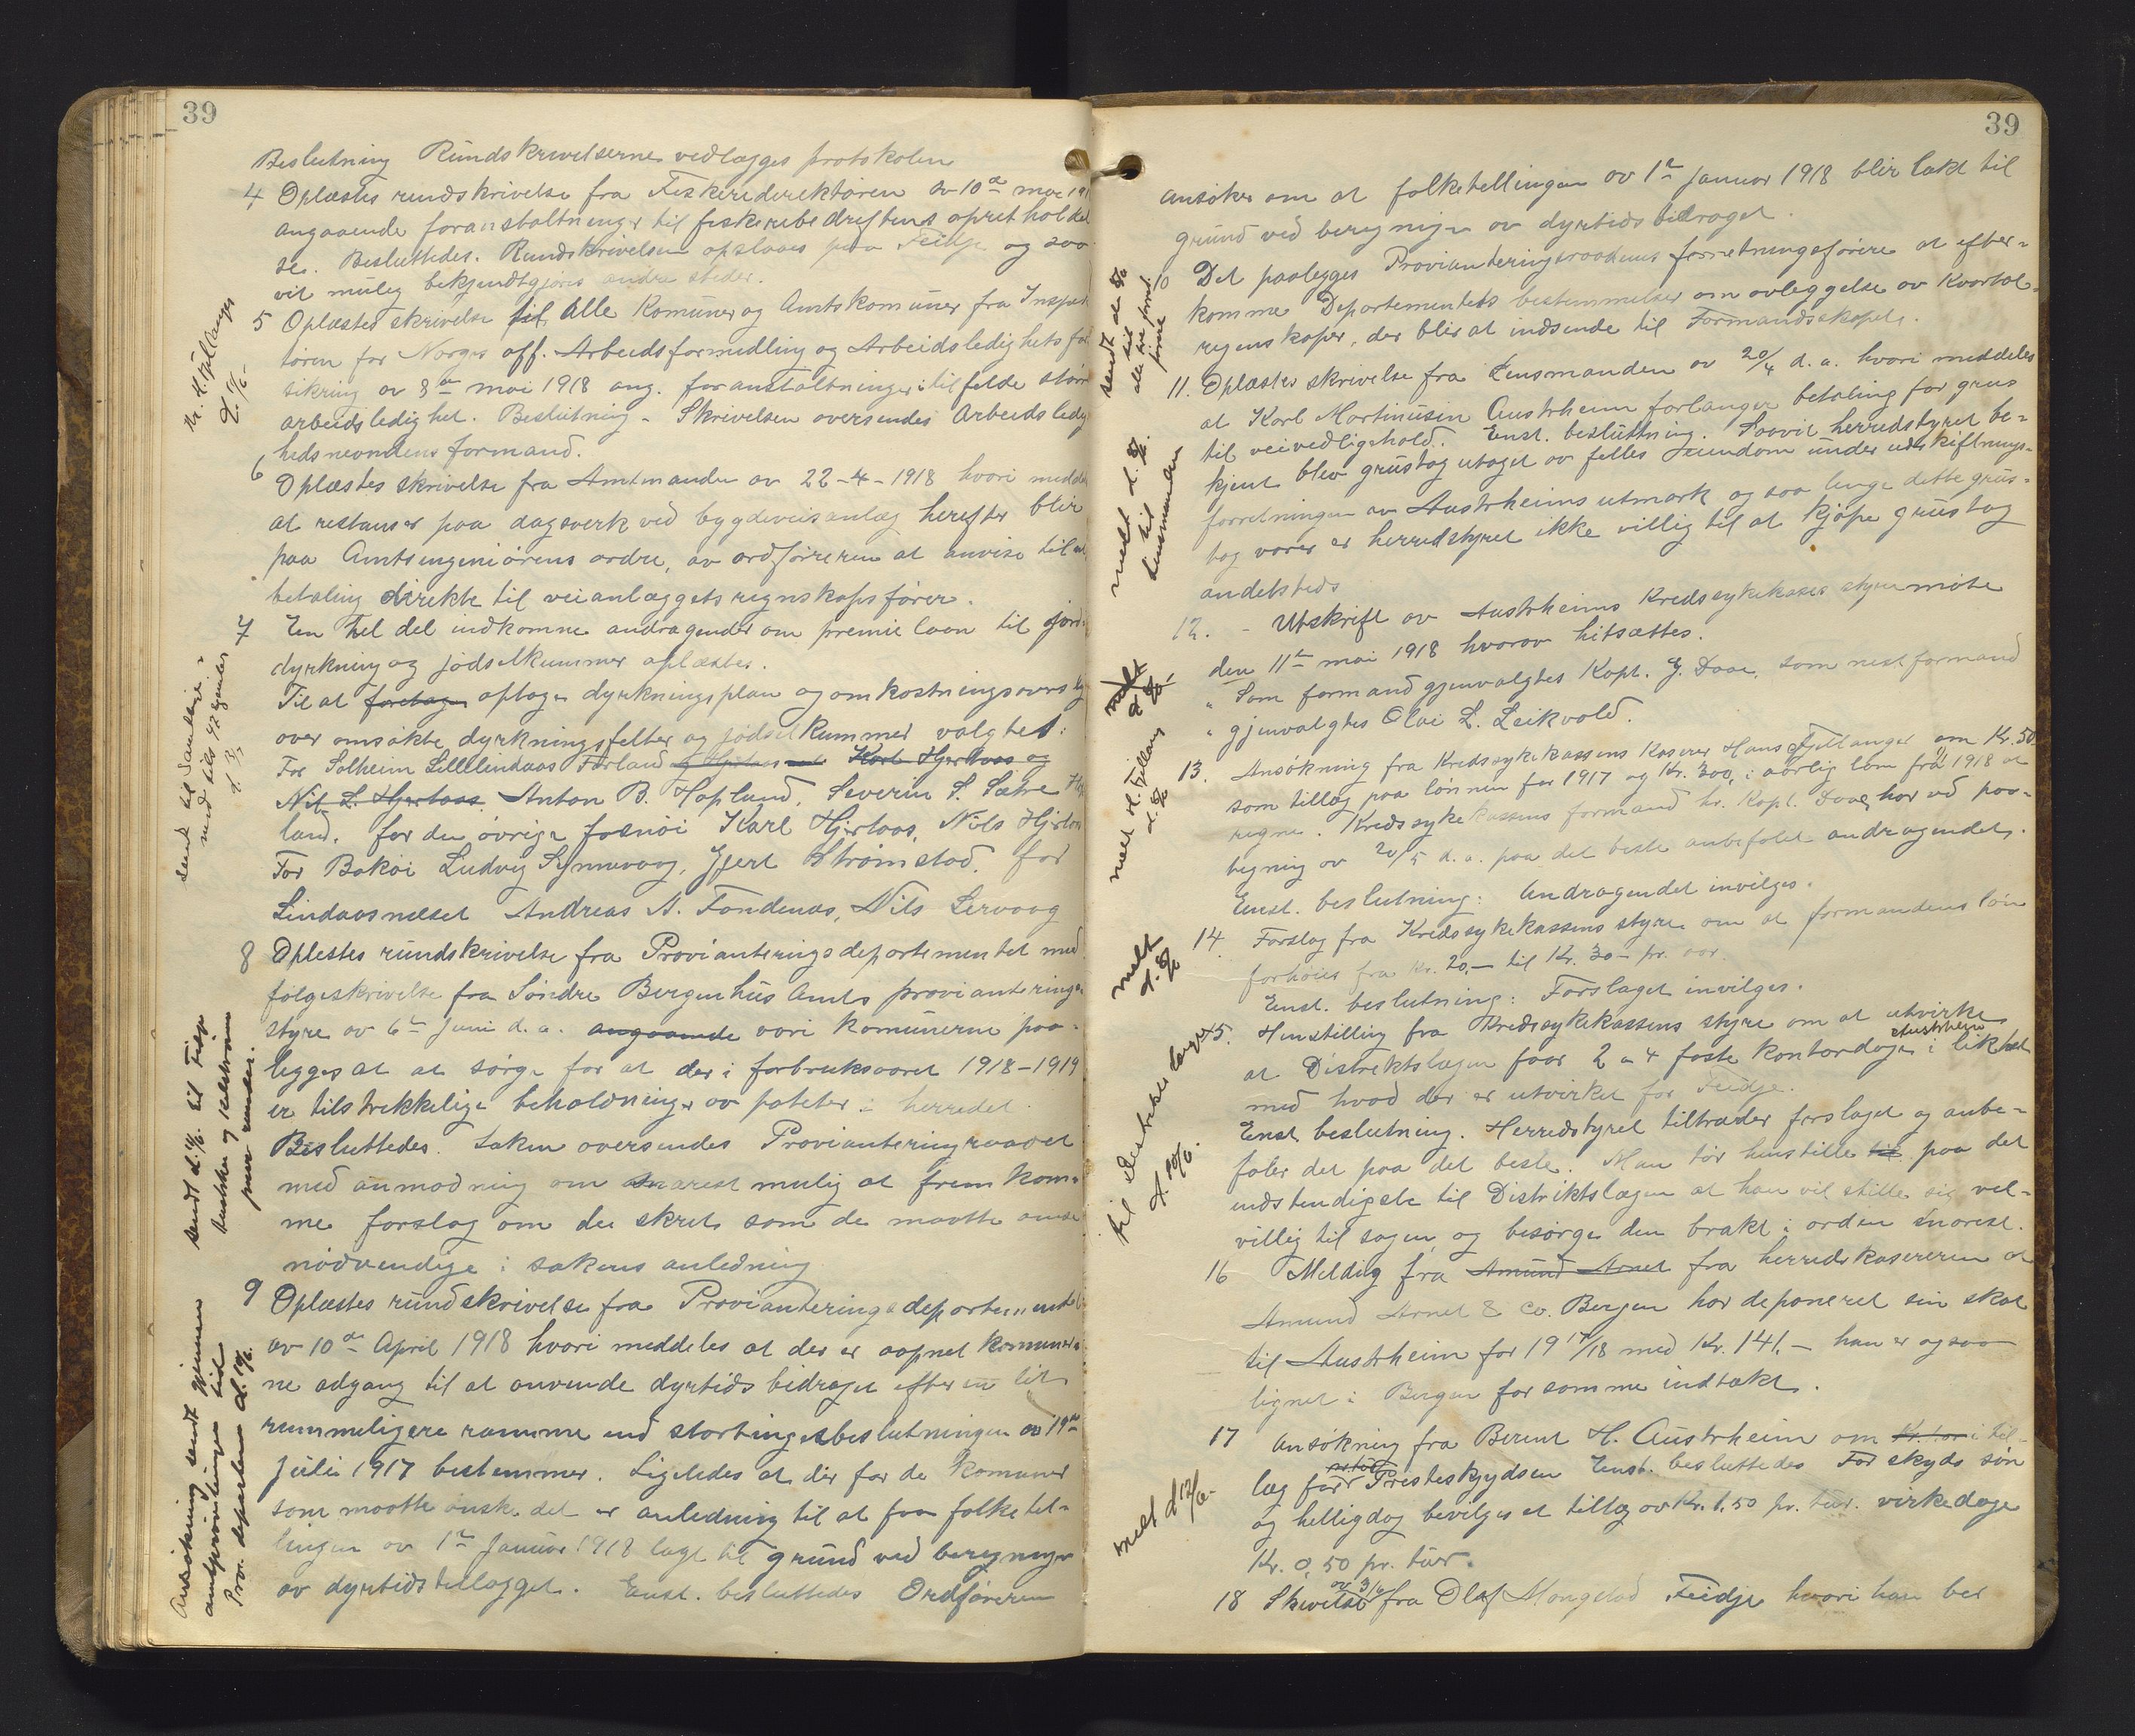 39
Beslutning Rundskrivelserne vedlægges protokolen
4 Oplæstes rundskrivelse fra Fiskeridirektøren av 10de mai 191
angaaende foranstaltninger til fiskeribedriftens oprethold
se. Besluttedes. Rundskrivelsen opslaaes paa Feidje og saa
vit mulig bekjendtgjøres andre steder.
Hr. H. Fjellanger
5 Oplæstes skrivelse til Alle Komuner og Amtskomuner fra Inspek
tøren for Norges off. Arbeidsformidling og Arbeidsledighetsfor
sikring av 8de mai 1918 ang. foranstaltninger i tilfelde større
arbeidsledighet. Beslutning - Skrivelsen oversendes Arbeidsledig
hedsnevndens formand.
6 Oplæstes skrivelse fra Amtmanden av 22-4-1918 hvori meddel
at restanser paa dagsverk ved bygdeveisanlæg herefter blir
paa Amtsingeniørens ordre, av ordføreren at anvise til ut
betaling direkte til veianlæggets regnskapsfører.
7 En hel del indkomne andragender om premie laan til jord-
dyrkning og jødselkummer oplæstes.
Til at foretage optage dyrkningsplan og omkostningsoverslag
over omsøkte dyrkningsfelter og jødselkummer valgtes:
For Solheim Lillelindaas Førland Karl Hjertaas og
Nils L. Hjertaas Anton B. Hoplund, Severin S. Sætre
land. for den øvrige fosnøi Karl Hjertaas, Nils Hjertaas
For Bakøi Ludvig Synnevaag, Gjert Strømstad. for
Lindaasneset Andreas A. Fondenæs, Nils Lervaag
8 Oplestes rundskrivelse fra Provianteringsdepartementet med
følgeskrivelse fra Søndre Bergenhus Amts provianterings
styre av 6te Juni d.a. angaaende vori komunerne paa-
legges at at sørge for at der i forbruksaaret 1918-1919
er tilstrekkelige beholdninger av poteter i herredet
Besluttedes. Saken oversendes Provianteringsraadet
med anmodning om snarest mulig at fremkom-
me forslag om de skrit som de maatte anse
nødvendige i sakens anledning
9 Oplæstes rundskrivelse fra Provianteringsdepartementet
av 10de April 1918 hvori meddeles at der er aapnet komuner
ne adgang til at anvende dyrtidsbidraget efter en lit
rummeligere ramme end stortingesbeslutningen av 19de
juli 1917 bestemmer. Ligeledes at der for de komuner
som maatte ønske det er anledning til at faa folketel-
lingen av 1te Januar 1918 lagt til grund ved beregninger
av dyrtidstillægget. Enst. besluttedes Ordføreren
39
ansøker om at folketellingen av 1te Januar 1918 blir lakt til
grund ved beregningen av dyrtidsbidraget.
10 Det paalegges Provianteringsraadenes forretningsførere at efter-
komme Departementets bestemmelser om avleggelse av Kvartal-
regenskaper, der blir at indsende til Formandsskapet.
11. Oplæstes skrivelse fra Lensmanden av 20/4 d.a. hvori meddeles
at Karl Martinusen Austrheim forlanger betaling for grus
til veivedligehold. Enst. besluttning. Saavit herredstyret be-
kjent blev grustag utaget av felles eiendom under utskiftnings-
forretningen av Austrheims utmark og saa lenge dette grus-
tag varer er herredstyret ikke villig til at kjøpe grustag
andetsteds
12. - Utskrift av Austrheims Kredssykekasses styremøte
den 11te mai 1918 hvorav hitsættes.
" Som formand gjenvalgtes Kapt. G. Daae, som nestformand
" gjenvalgtes Olai L. Leikvold.
13. Ansøkning fra Kredssykekassens Kaserer Hans Fjellanger om Kr. 50
som tillæg paa lønnen for 1917 og Kr. 300, i aarlig løn fra 1918 at
regne. Kredssykekassens formand hr. Kapt. Daae, har ved paa-
tegning av 20/5 d.a. paa det beste anbefalet andragendet.
Enst. beslutning: Andragendet invilges.
14. Forslag fra Kredssykekassens styre om at formandens løn
forhøies fra Kr. 20,- til Kr. 30- pr. aar.
Enst. beslutning: Forslaget invilges.
15. Henstilling fra Kredssykekassens styre om at utvirke
at Distriktslægen faar 2 a 4 faste kontordage i Austrheim likhet
med hvad der er utvirket for Feidje.
Enst. beslutning. Herredstyret tiltræder forslaget og anbe-
faler det paa det beste. Man tør henstille til paa det
indstendigste til Distriktslægen at han vil stille sig vel-
villig til sagen og besørge den brakt i orden snarest.
16 Melding fra Amund Arnet fra herredskasereren at
Amund Arnet & Co. Bergen har deponeret sin skat
til Austrheim for 1917/18 med Kr. 141.- han er ogsaa
lignet i Bergen for somme indtækt.
17 Ansøkning fra Berent H. Austrheim om i til-
læg for Presteskydsen Enst. besluttedes For skyds søn
og helligdag bevilges et tillæg av Kr. 1,50 pr. tur. virkedage
Kr. 0,50 pr. tur.
18 Skrivelse av 3/6 fra Olaf Mongstad Feidje hvori han ber